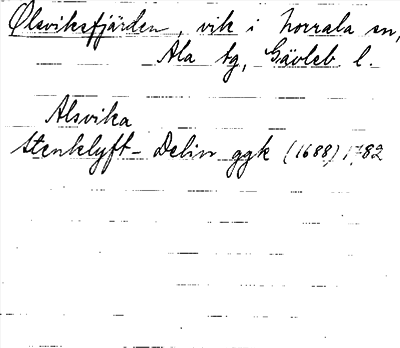 Ölsviksfjärden, vik i Norrala sn,
Ala tg, Gävleb l.
Alsvika
Stenklyft- Delin ggk (1688) 1782